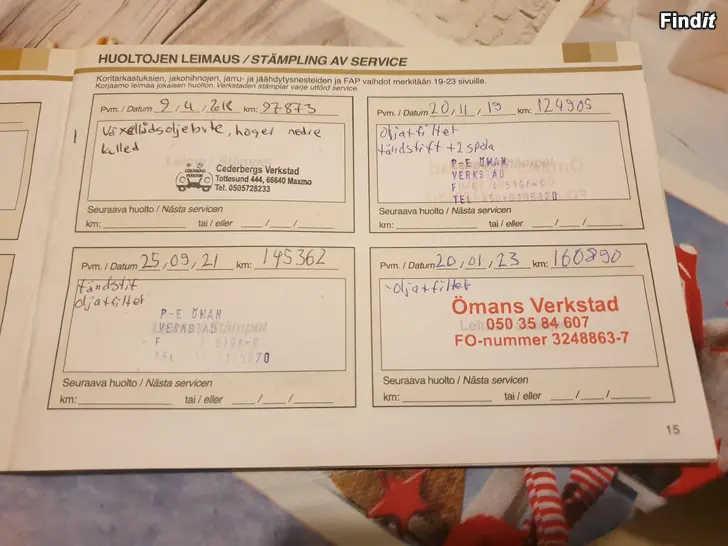 Findit
HUOLTOJEN LEIMAUS / STÄMPLING AV SERVICE
Koritarkastuksien, jakohihnojen, jarru- ja jäähdytysnesteiden ja FAP vaihdot merkitään 19-23 sivuille.
Korjaamo leimaa jokaisen huollon. Verkstaden stämplar varje utförd service.
Pvm. / Datum 9, 4, 2018 km: 97873
Växellådsoljebyte, höger nedre
kulled
Cederbergs Verkstad
Tottesund 444, 66640 Maxmo
Tel. 0505728233
Seuraava huolto / Nästa servicen
km: tai / eller
Pvm. / Datum 20, 11, 19 km: 124905
Olja+filter
tändstift +2 spola
P-E ÖMAN
VERKSTAD
TEL
Seuraava huolto / Nästa servicen
km: tai / eller
Pvm. / Datum 25, 09, 21 km: 145362
tändstift
olja+filter
P-E ÖMAN
VERKSTAD
TEL
Seuraava huolto / Nästa servicen
km: tai / eller
Pvm. / Datum 20, 01, 23 km: 160890
olja+filter
Ömans Verkstad
050 35 84 607
FO-nummer 3248863-7
Seuraava huolto / Nästa servicen
km: tai / eller
15